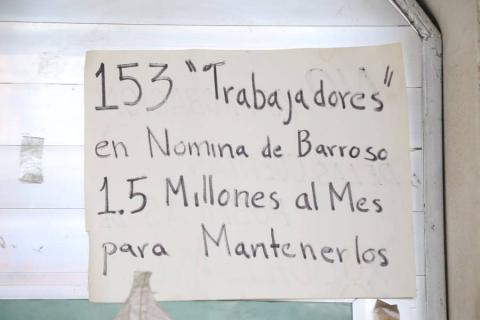 153 "Trabajadores"
en Nomina de Barroso
1.5 Millones al Mes
para Mantenerlos